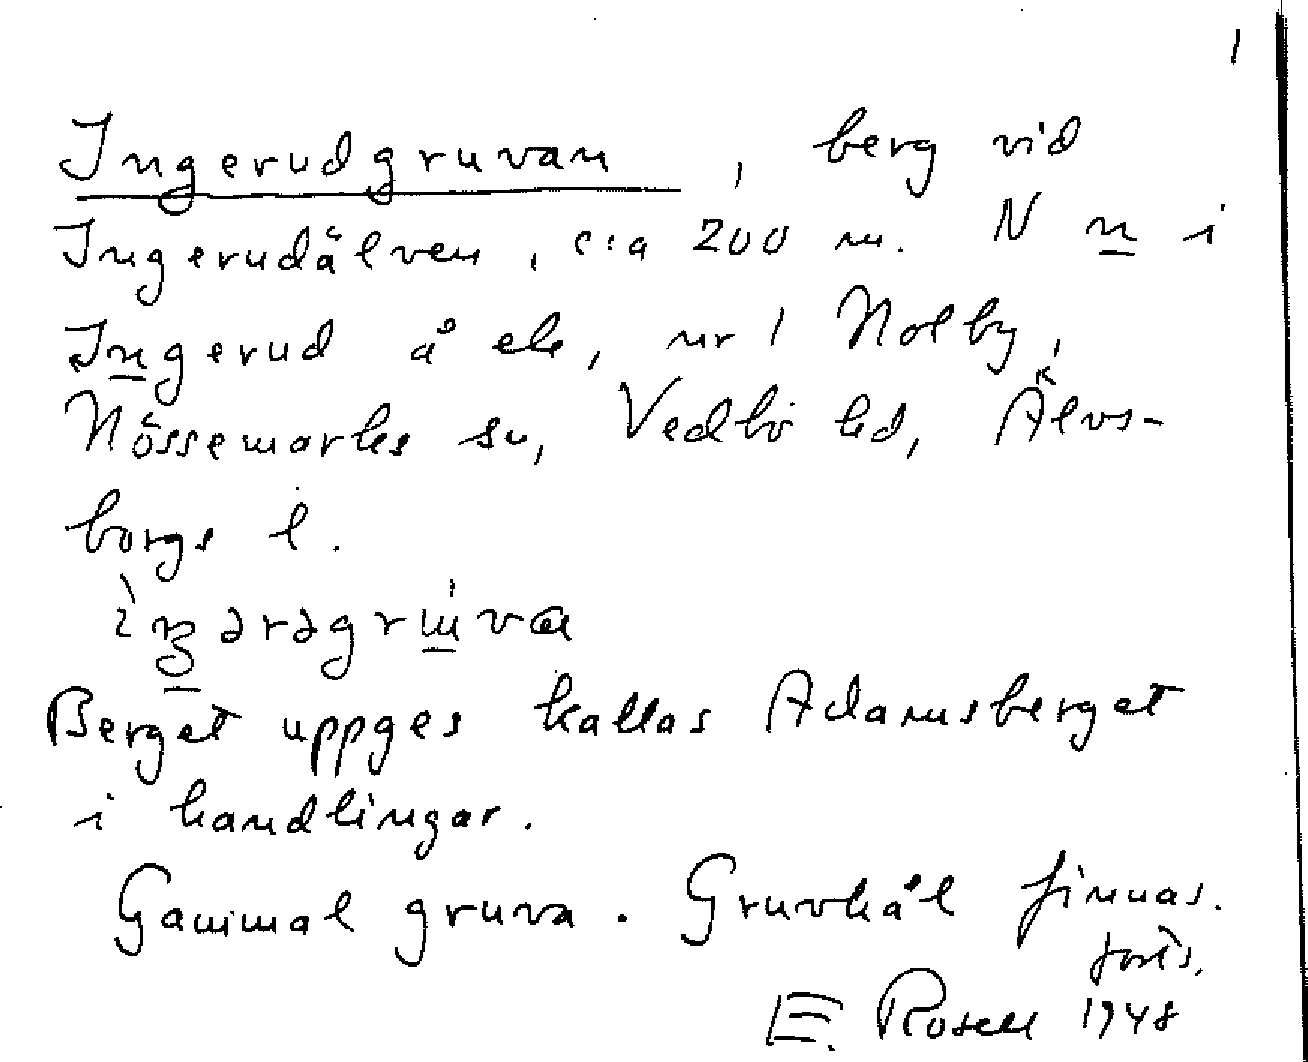 1
Ingerudgruvan, berg vid
Ingerudälven, c:a 200 m. N n i
Ingerud å ek, nr 1 Nolby,
Nössemarks sn, Vedbo hd, Älvs-
borgs l.
Berget uppges kallas Adamsberget
i handlingar.
Gammal gruva. Gruvhål finnas.
forts.
E. Rosell 1948